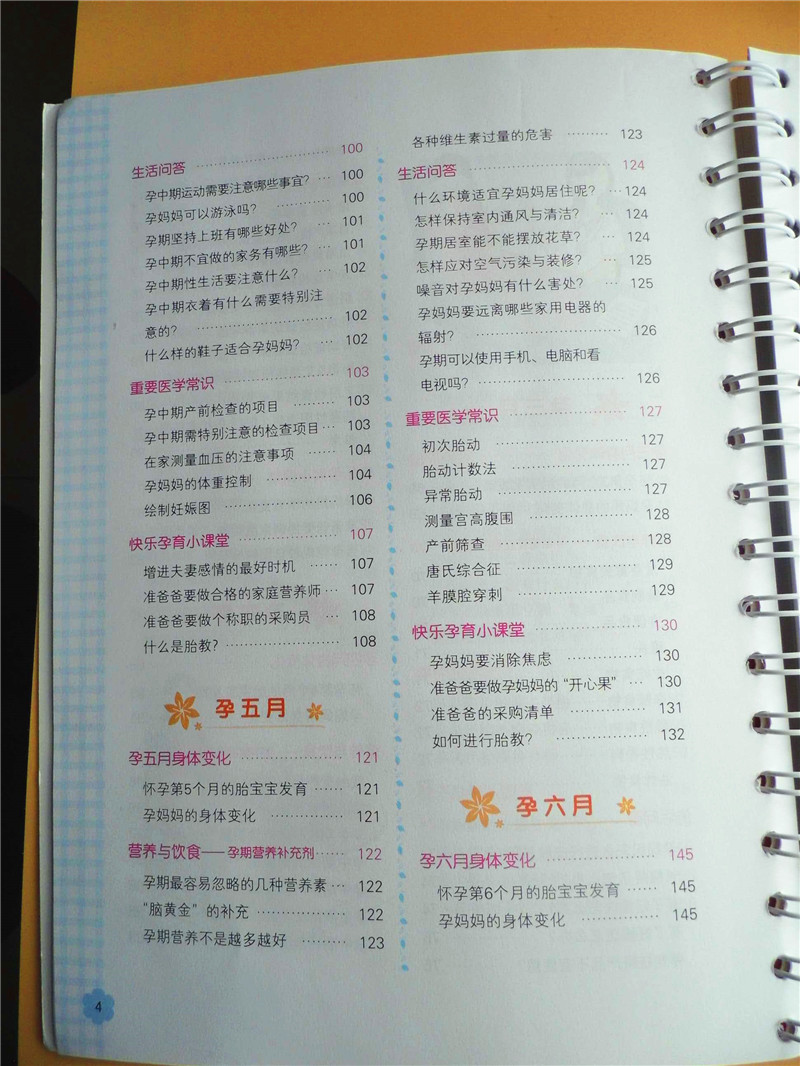 生活问答 100
孕中期运动需要注意哪些事宜? … 100
孕妈妈可以游泳吗? ………… 100
孕期坚持上班有哪些好处? … 101
孕中期不宜做的家务有哪些? … 101
孕中期性生活要注意什么? … 102
孕中期衣着有什么需要特别注
意的? ………………… 102
什么样的鞋子适合孕妈妈? … 102
重要医学常识 ………………… 103
孕中期产前检查的项目 ……… 103
孕中期需特别注意的检查项目 … 103
在家测量血压的注意事项 …… 104
孕妈妈的体重控制 …………… 104
绘制妊娠图 ………………… 106
快乐孕育小课堂 ……………… 107
增进夫妻感情的最好时机 …… 107
准爸爸要做合格的家庭营养师 … 107
准爸爸要做个称职的采购员 … 108
什么是胎教? ………………… 108
孕五月
孕五月身体变化 ……………… 121
怀孕第5个月的胎宝宝发育 …… 121
孕妈妈的身体变化 …………… 121
营养与饮食——孕期营养补充剂 …… 122
孕期最容易忽略的几种营养素 … 122
“脑黄金”的补充 …………… 122
孕期营养不是越多越好 ……… 123
4
各种维生素过量的危害 ……… 123
生活问答 …………………… 124
什么环境适宜孕妈妈居住呢? … 124
怎样保持室内通风与清洁? … 124
孕期居室能不能摆放花草? … 124
怎样应对空气污染与装修? … 125
噪音对孕妈妈有什么害处? … 125
孕妈妈要远离哪些家用电器的
辐射? ………………… 126
孕期可以使用手机、电脑和看
电视吗? ………………… 126
重要医学常识 ………………… 127
初次胎动 …………………… 127
胎动计数法 ………………… 127
异常胎动 …………………… 127
测量宫高腹围 ……………… 128
产前筛查 …………………… 128
唐氏综合征 ………………… 129
羊膜腔穿刺 ………………… 129
快乐孕育小课堂 ……………… 130
孕妈妈要消除焦虑 ………… 130
准爸爸要做孕妈妈的“开心果” … 130
准爸爸的采购清单 ………… 131
如何进行胎教? ……………… 132
孕六月
孕六月身体变化 ……………… 145
怀孕第6个月的胎宝宝发育 …… 145
孕妈妈的身体变化 …………… 145